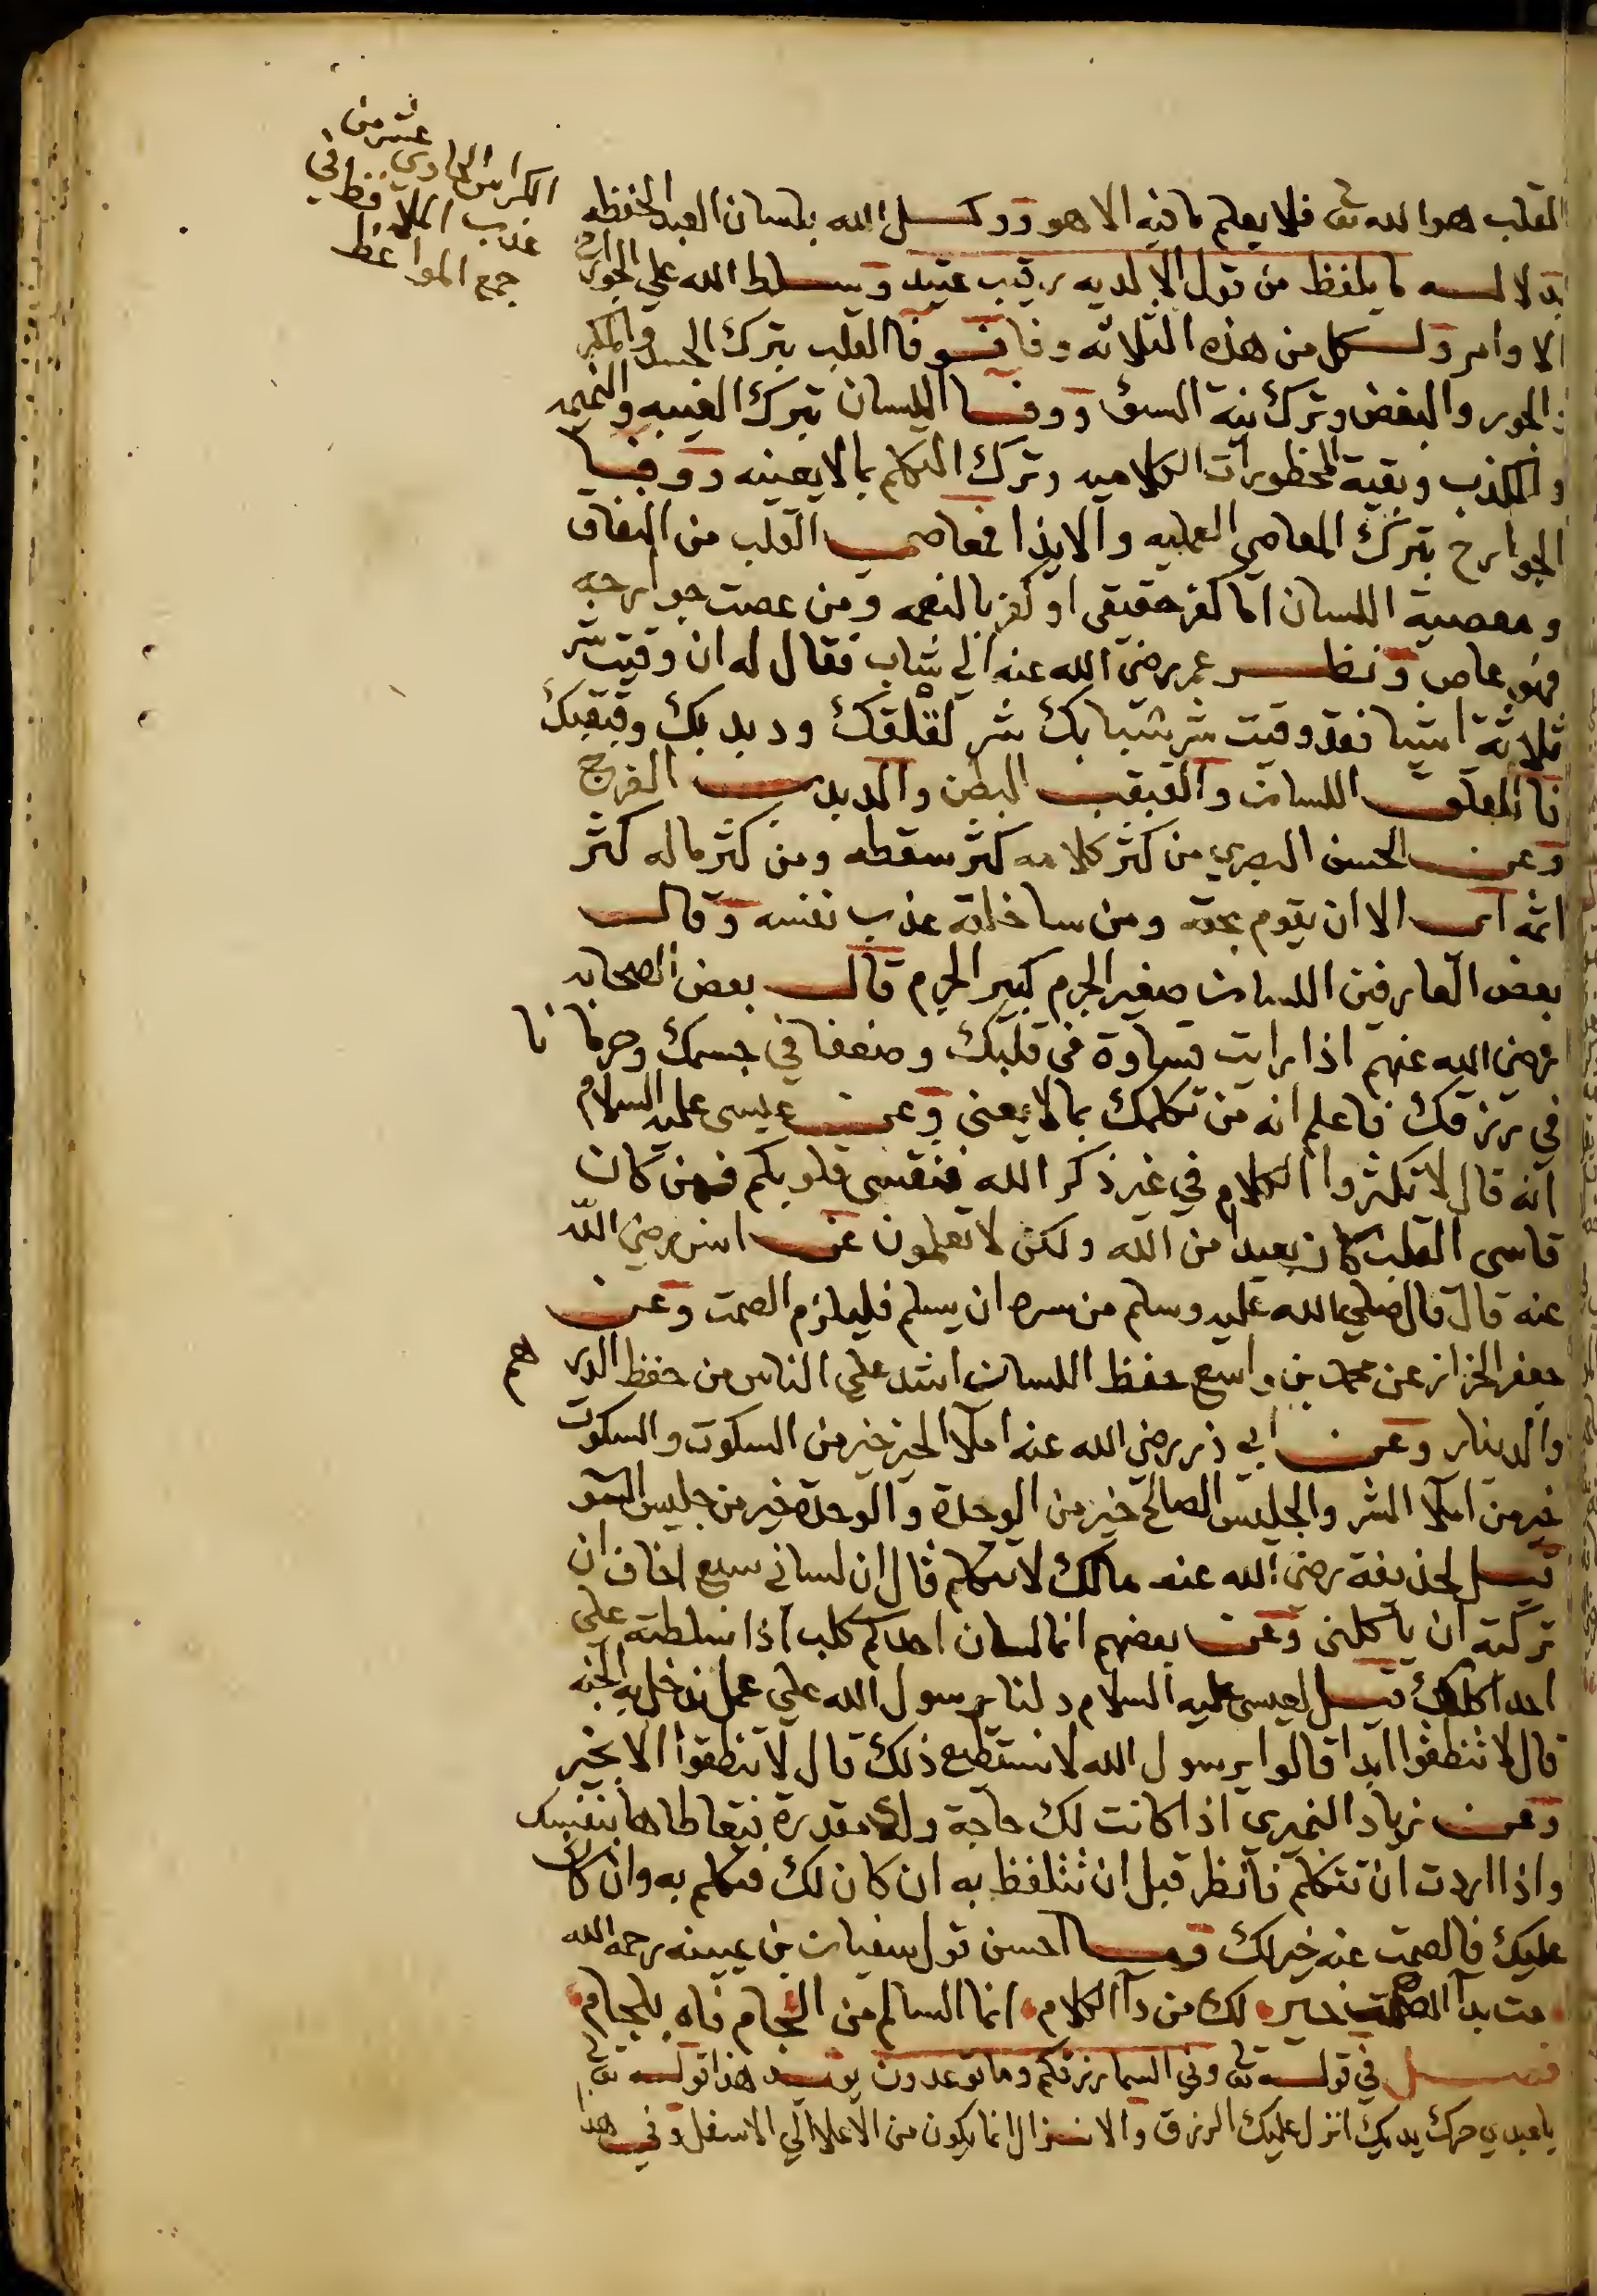 عشر من
الكراس الحادي
عذب الملافظ في
جمع المواعظ
القلب هو الله تعـ فلا يعلم ما فيه الا هو ووكـل الله بلسان العبد الحفظه
بدلالـه ما يلفظ من قول الا لديه رقيب عتيد وسـلط الله على الجوارح
الاوامر ولـكل من هذه الثلاثه وفا فـوفا القلب بترك الحسد والمكر
والجور والبغض وترك نية السوء ووفـا اللسان بترك الغيبه والنميمه
والكذب وبقية المحظورات الكلاميه وترك التكلم بما لا يعنيه ووفـا
الجوارح بترك المعاصي العمليه والايذا فمعاصـي القلب من النفاق
ومعصية اللسان اما كفر حقيقي او كفر بالنعمه ومن عصت جوارحه
فهو عاص ونظـر عمر رضي الله عنه الى شاب فقال له ان وقيت شر
ثلاثة اشيا فقد وقيت شر شبابك شر لقلقك ودبدبك وقبقبك
فاللقلق اللسان والقبقب البطن والدبدب الفرج
وعن الحسن البصري من كثر كلامه كثر سقطه ومن كثر ماله كثر
اثمه اي الا ان يقوم بحقه ومن سا خلقه عذب نفسه وقال
بعض العارفين اللسان صغير الجرم كبير الجرم قال بعض الصحابه
رضي الله عنهم اذا رايت قساوة في قلبك وضعفا في جسمك وحرمانا
في رزقك فاعلم انه من تكلمك بما لا يعني وعن عيسى عليه السلام
انه قال لا تكثروا الكلام في غير ذكر الله فتقسى قلوبكم فمن كان
قاسى القلب كان بعيدا من الله ولكن لا تعلمون عن انس رضي الله
عنه قال قال صلى الله عليه وسلم من سره ان يسلم فليلزم الصمت وعن
جعفر الخزاز عن محمد بن واسع حفظ اللسان اشد على الناس من حفظ الدرهم
والدينار وعن ابي ذر رضي الله عنه املا الخير خير من السكوت والسكوت
خير من املا الشر والجليس الصالح خير من الوحدة والوحدة خير من جليس السو
قيـل لحذيفة رضي الله عنه مالك لا تتكلم قال ان لساني سبع اخاف ان
تركته ان ياكلني وعن بعضهم انما لسان احدكم كلب اذا سلطته على
احد اكلك قيـل لعيسى عليه السلام دلنا يرسول الله على عمل ندخل به الجنه
قال لا تنطقوا ابدا قالوا يرسول الله لا نستطيع ذلك قال لا تنطقوا الا بخير
وعن زياد النميري اذا كانت لك حاجة ولك مقدرة بتعاطاها بنفسك
واذا اردت ان تتكلم فانظر قبل ان تتلفظ به ان كان لك فتكلم به وان كان
عليك فالصمت عنه خير لك ومـا احسن قول سفيان بن عيينه رحمه الله
مت بدآ الصمت خير لك من دآ الكلام انما السالم من الجم فاه بلجام
فصـل في قولـه تعـ وفي السما رزقكم وما توعدون يويـد هذا قولـه تعـ
يا عبدي حرك يديك انزل عليك الرزق والانـزال انما يكون من الاعلا الى الاسفل وفي هذا